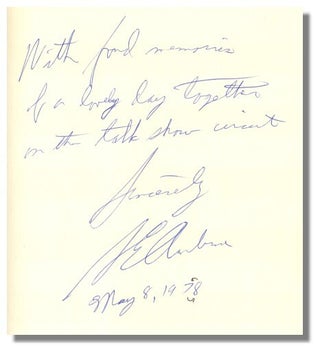 With fond memories
of a lovely day together
on the talk show circuit
Sincerely
May 8, 1978